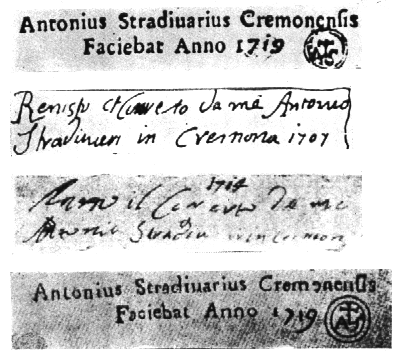 Antonius Stradiuarius Cremonensis
Faciebat Anno 1719
Revisto Corretto da me Antonio
Stradiuari in Cremona 1707
1714
Anno il da me
Antonio Stradiu in Cremon
Antonius Stradiuarius Cremonensis
Faciebat Anno 1719